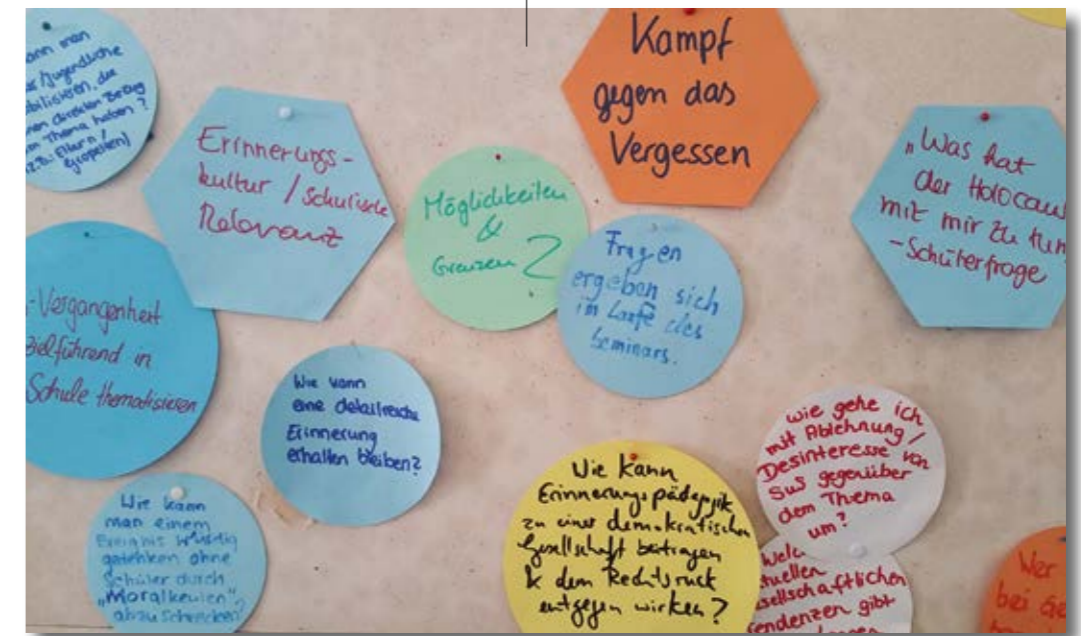 kann man
/Jugendliche
bilisieren, die
nen direkten Bezug
m Thema haben?
(z.B.: Eltern/
Großeltern)
Erinnerungs-
kultur / Schulische
Relevanz
Möglichkeiten
&
Grenzen?
Kampf
gegen das
Vergessen
"Was hat
der Holocaus
mit mir zu tun
-Schülerfrage
Fragen
ergeben sich
im Laufe des
Seminars.
-Vergangenheit
zielführend in
Schule thematisieren
Wie kann
eine detailreiche
Erinnerung
erhalten bleiben?
Wie kann
man einem
Ereignis würdig
gedenken ohne
Schüler durch
"Moralkeulen"
abzuschrecken?
Wie kann
Erinnerungspädagogik
zu einer demokratischen
Gesellschaft beitragen
& dem Rechtsruck
entgegen wirken?
wie gehe ich
mit Ablehnung/
Desinteresse von
SuS gegenüber
dem Thema
um?
Welc
tuellen
sellschaftlichen
endenzen gibt
Wer
bei Ge